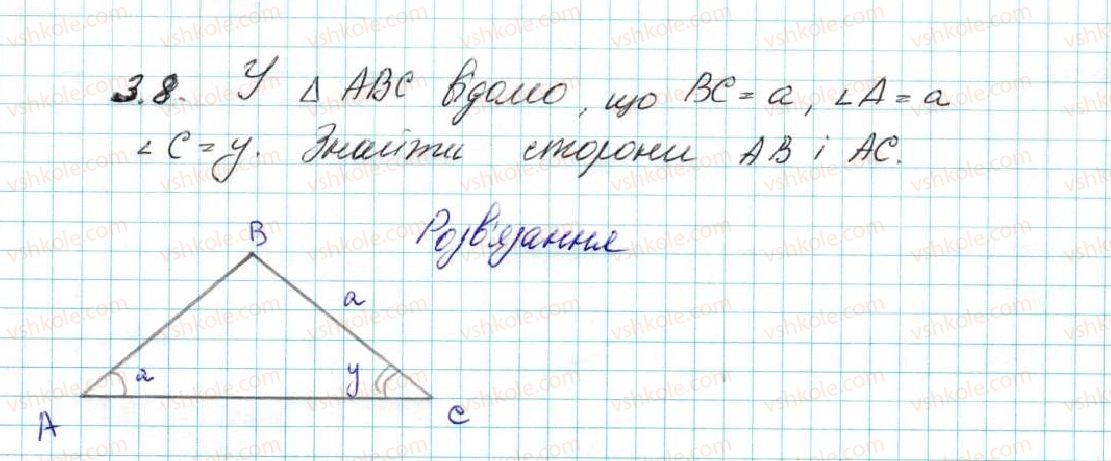 3.8. У Δ ABC відомо, що BC = a, ∠A = a
∠C = y. Знайти сторони AB і AC.
Розв'язання
B
a
a
y
A
C
vshkole.com